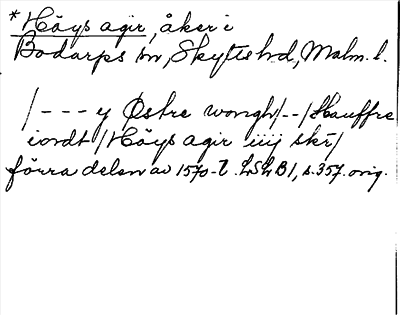 *Höys agir, åker i
Bodarps sn, Skytts hd, Malm. l.
/--- y Østre wongh/--/Hauffre
iordt/Höys agir iiij skr/
förra delen av 1570-t. LSLB1, s.357. orig.